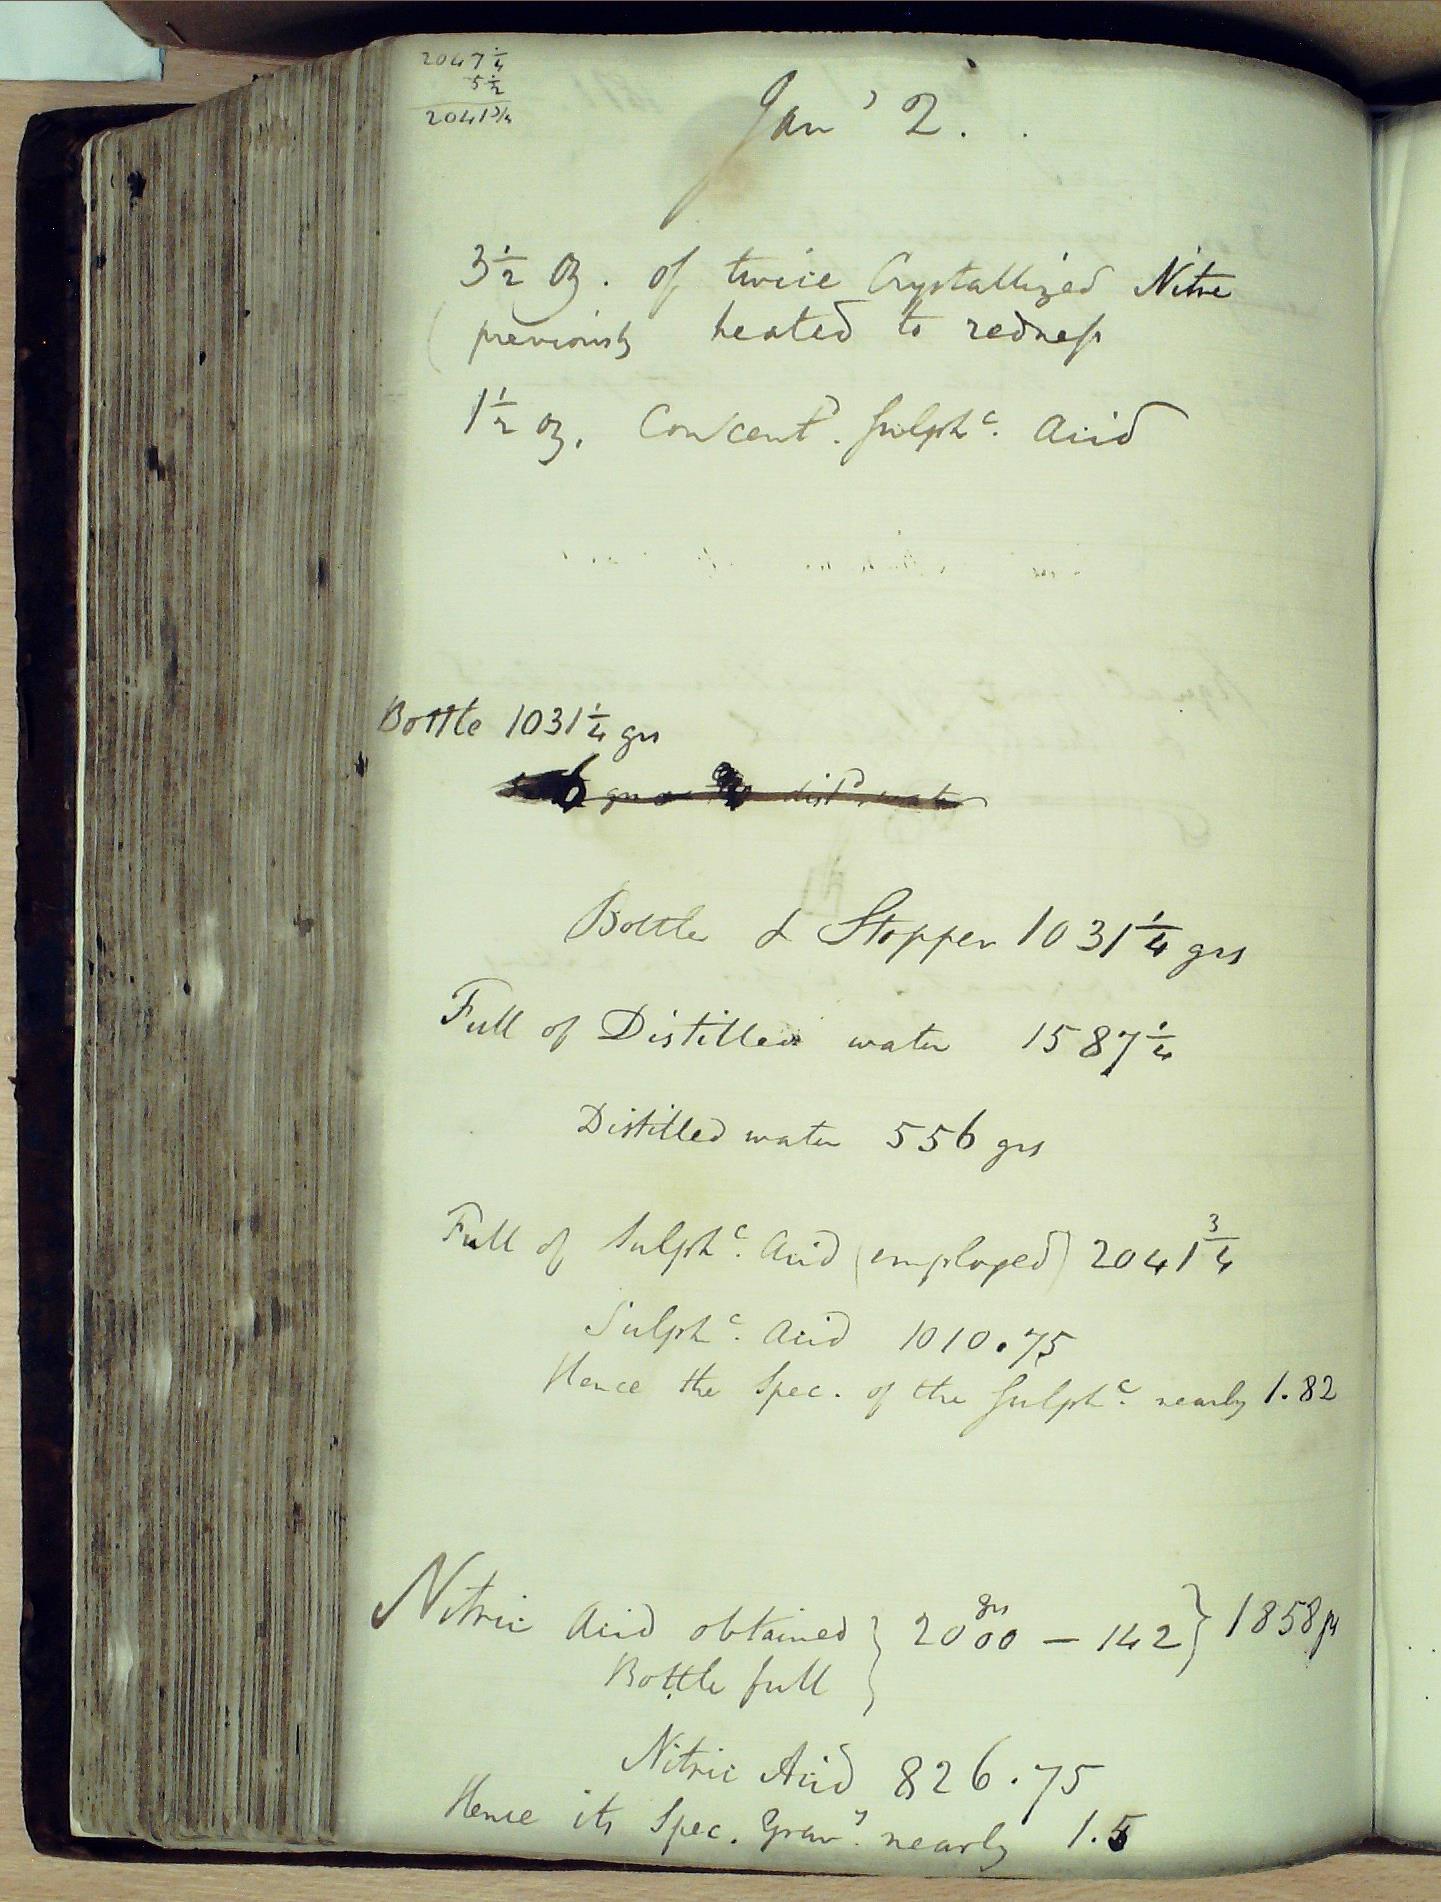 2047 1/4
5 1/2
2041 3/4
Jan' 2.
3 1/2 oz. of twice Crystallized Nitre
(previously heated to redness
1 1/2 oz. Concentd. Sulphc. Acid
Bottle 1031 1/4 grs
6 grs distd. water
Bottle & Stopper 1031 1/4 grs
Full of Distilled water 1587 1/4
Distilled water 556 grs
Full of Sulphc. Acid (employed) 2041 3/4
Sulphc. Acid 1010.75
Hence the Spec. of the Sulphc. nearly 1.82
Nitric Acid obtained } 2000 grs — 142 } 1858 gr
Bottle full
Nitric Acid 826.75
Hence its Spec. Gravy. nearly 1.5